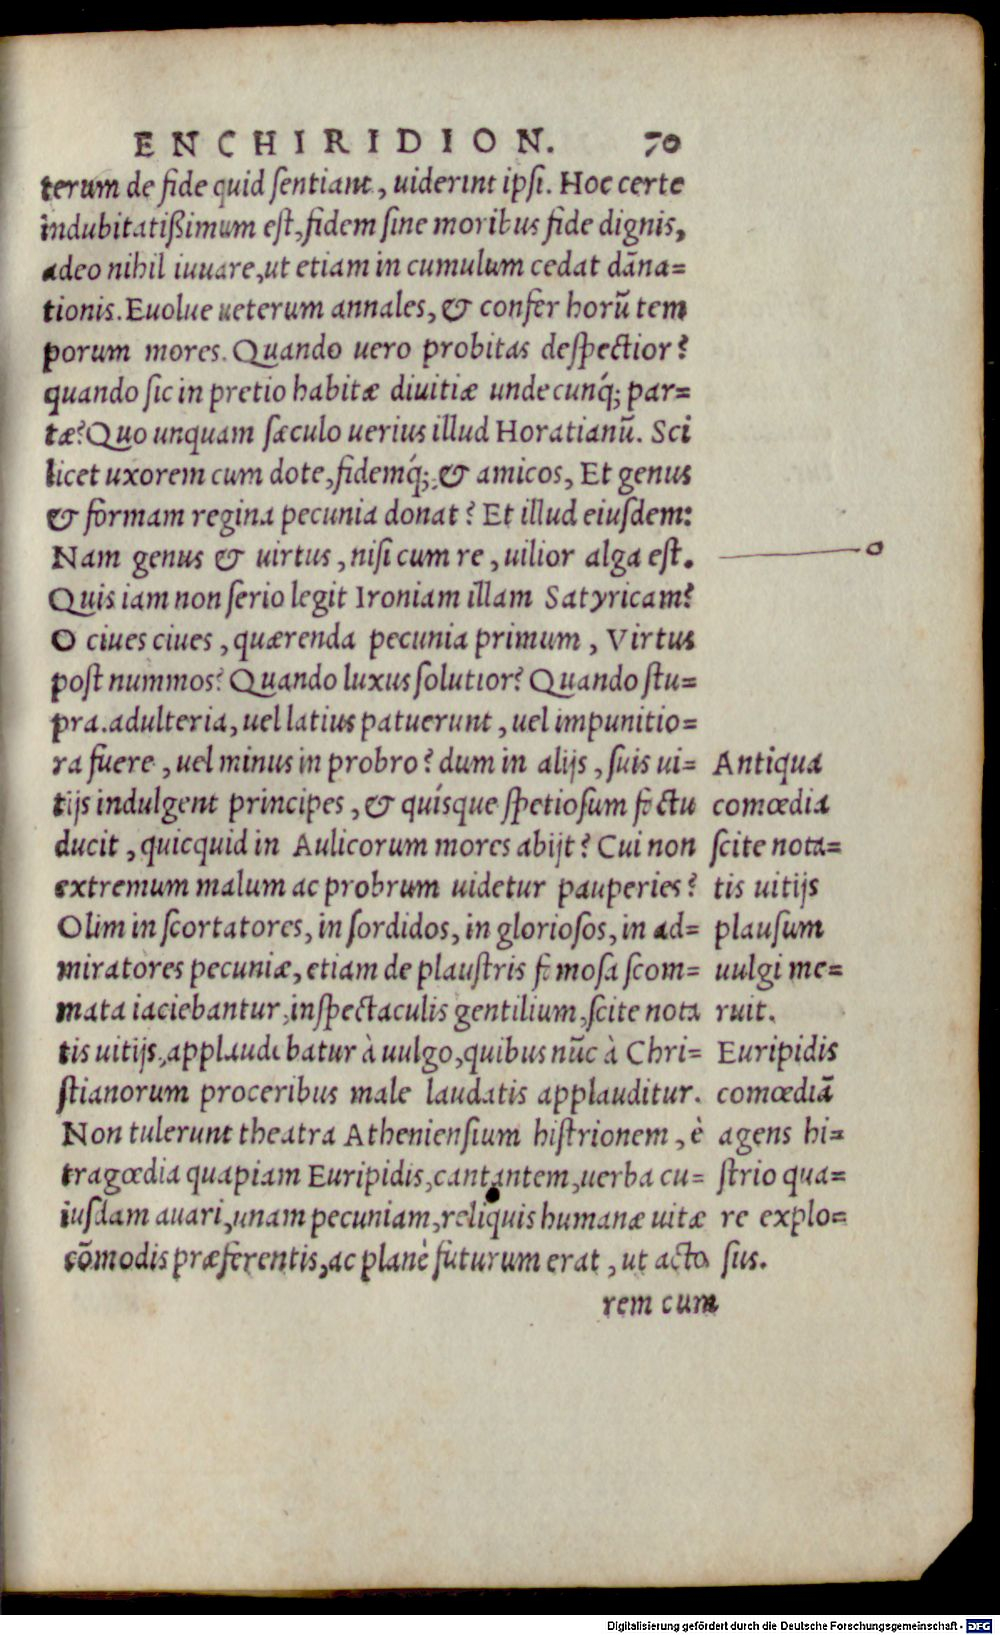 ENCHIRIDION. 70
terum de fide quid sentiant, uiderint ipsi. Hoc certe
indubitatißimum est, fidem sine moribus fide dignis,
adeo nihil iuuare, ut etiam in cumulum cedat dãna=
tionis. Euolue ueterum annales, & confer horũ tem
porum mores. Quando uero probitas despectior?
quando sic in pretio habitæ diuitiæ undecunq́; par=
tæ? Quo unquam sæculo uerius illud Horatianũ. Sci
licet uxorem cum dote, fidemq́; & amicos, Et genus
& formam regina pecunia donat? Et illud eiusdem:
Nam genus & uirtus, nisi cum re, uilior alga est.
Quis iam non serio legit Ironiam illam Satyricam?
O ciues ciues, quærenda pecunia primum, Virtus
post nummos? Quando luxus solutior? Quando stu=
pra. adulteria, uel latius patuerunt, uel impunitio=
ra fuere, uel minus in probro? dum in alijs, suis ui=
tijs indulgent principes, & quísque spetiosum factu
ducit, quicquid in Aulicorum mores abijt? Cui non
extremum malum ac probrum uidetur pauperies?
Olim in scortatores, in sordidos, in gloriosos, in ad=
miratores pecuniæ, etiam de plaustris famosa scom=
mata iaciebantur, in spectaculis gentilium, scite nota
tis uitijs, applaudebatur à uulgo, quibus nũc à Chri=
stianorum proceribus male laudatis applauditur.
Non tulerunt theatra Atheniensium histrionem, è
tragœdia quapiam Euripidis, cantantem, uerba cu=
iusdam auari, unam pecuniam, reliquis humanæ uitæ
cõmodis præferentis, ac planè futurum erat, ut acto
rem cum
Antiqua
comœdia
scite nota=
tis uitijs
plausum
uulgi me=
ruit.
Euripidis
comœdiã
agens hi=
strio qua=
re explo=
sus.
Digitalisierung gefördert durch die Deutsche Forschungsgemeinschaft - DFG